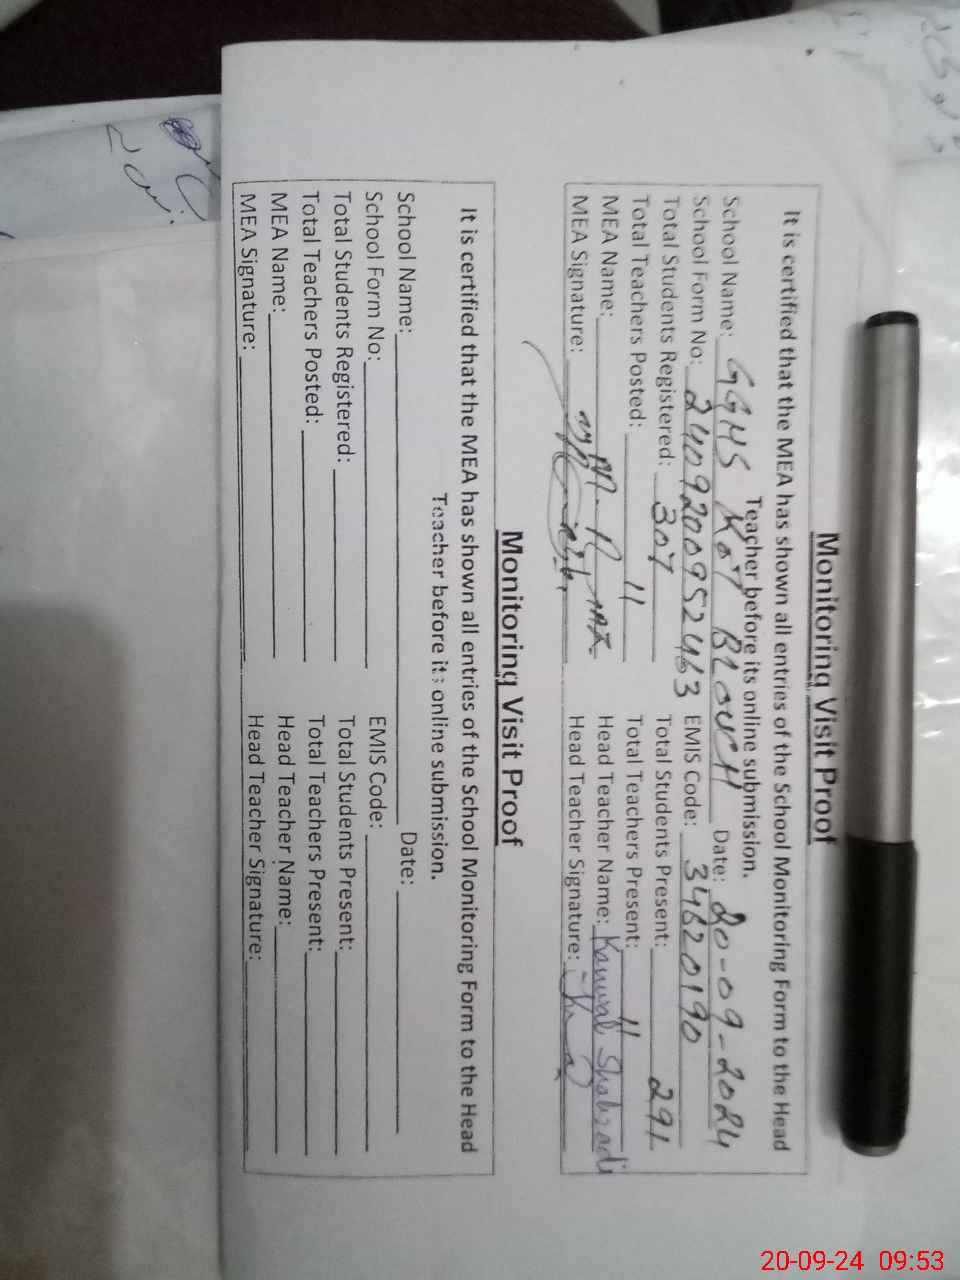 Monitoring Visit Proof
It is certified that the MEA has shown all entries of the School Monitoring Form to the Head
Teacher before its online submission.
School Name: GGHS KOT BLOUCH Date: 20-09-2024
School Form No: 2409200952463 EMIS Code: 34620190
Total Students Registered: 307 Total Students Present: 291
Total Teachers Posted: 11 Total Teachers Present: 11
MEA Name: Head Teacher Name: Kanwal Shahzadi
MEA Signature: Head Teacher Signature:
Monitoring Visit Proof
It is certified that the MEA has shown all entries of the School Monitoring Form to the Head
Teacher before its online submission.
School Name: Date:
School Form No: EMIS Code:
Total Students Registered: Total Students Present:
Total Teachers Posted: Total Teachers Present:
MEA Name: Head Teacher Name:
MEA Signature: Head Teacher Signature:
20-09-24 09:53